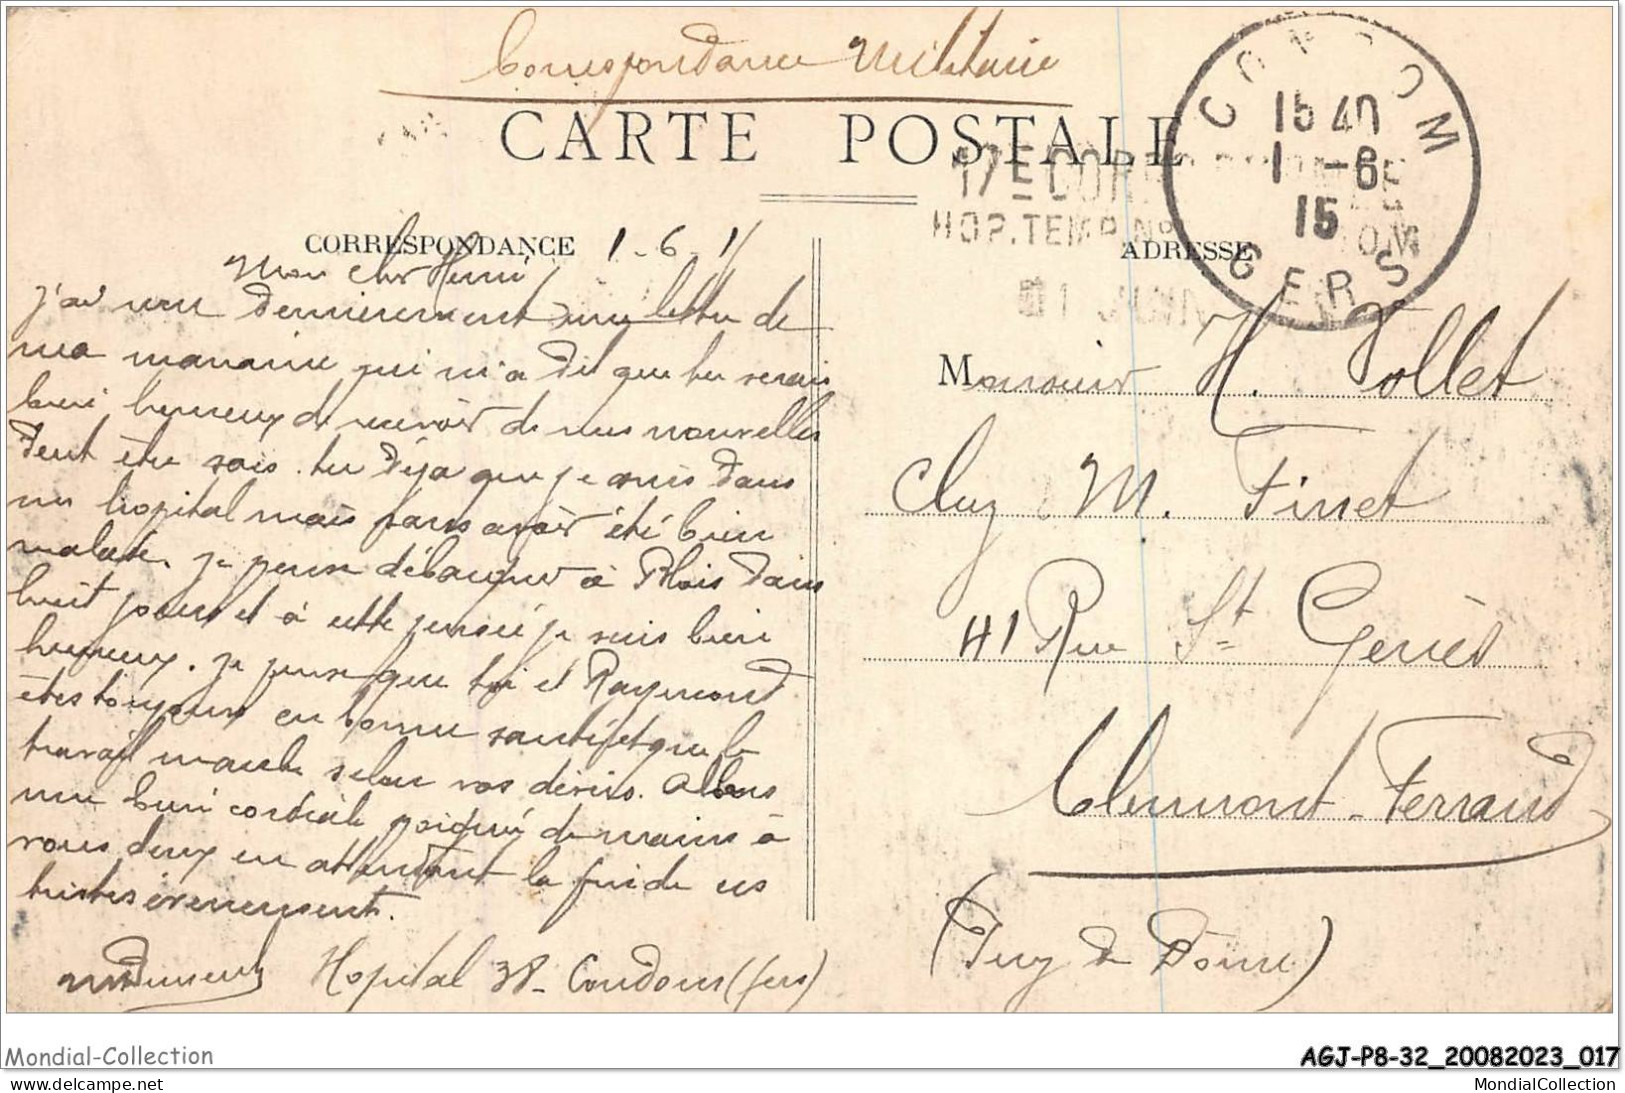 Correspondance Militaire
CARTE POSTALE
CONDOM
15 40
1 -6
15
GERS
17E CORPS
HOP. TEMP. No
1 JUIN
CORRESPONDANCE 1-6-1
ADRESSE
Mon cher Henri
j'ai reçu dernièrement une lettre de
ma marraine qui m'a dit que tu serais
bien heureux de recevoir de mes nouvelles
Peut être sais tu déjà que je suis dans
un hopital mais sans avoir été bien
malade. je pense débarquer à Blois dans
huit jours et à cette pensée je suis bien
heureux. je pense que toi et Raymond
êtes toujours en bonne santé et que le
travail marche selon vos désirs. Allons
une bien cordiale poignée de mains à
vous deux en attendant la fin de ces
tristes évènements.
Hopital 38 - Condom (Gers)
Monsieur H. Tollet
Chez M. Finet
41 Rue St Geniès
Clermont-Ferrand
(Puy de Dôme)
Mondial-Collection
AGJ-P8-32_20082023_017
delcampe.net
MondialCollection